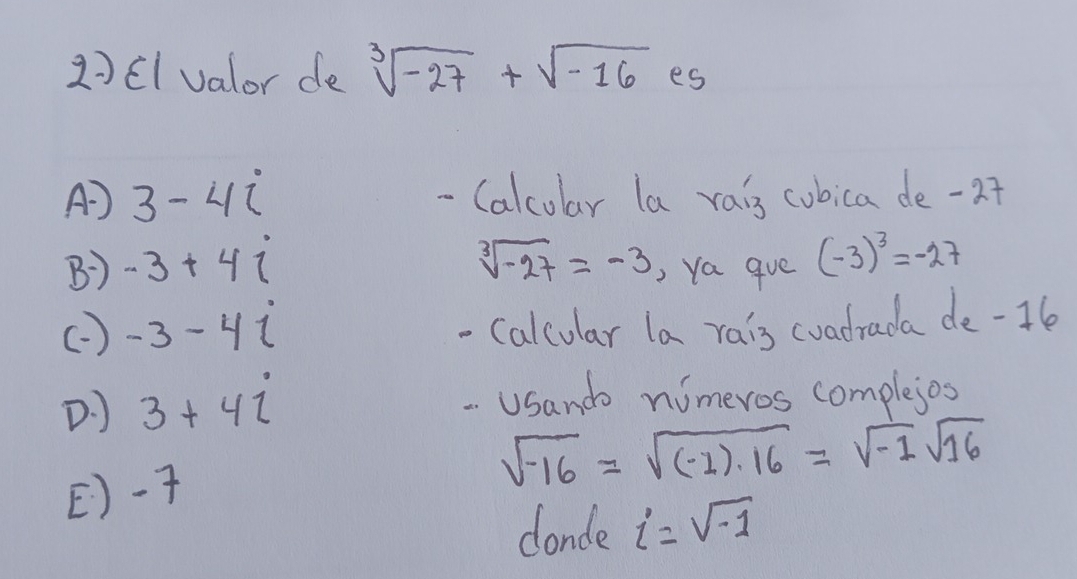 2.) El valor de ∛-27 + √-16 es
A.) 3 - 4i
B.) -3 + 4i
C.) -3 - 4i
D.) 3 + 4i
E.) -7
- Calcular la raíz cubica de -27
∛-27 = -3, ya que (-3)³ = -27
- Calcular la raíz cuadrada de -16
- Usando números complejos
√-16 = √(-1).16 = √-1 √16
donde i = √-1